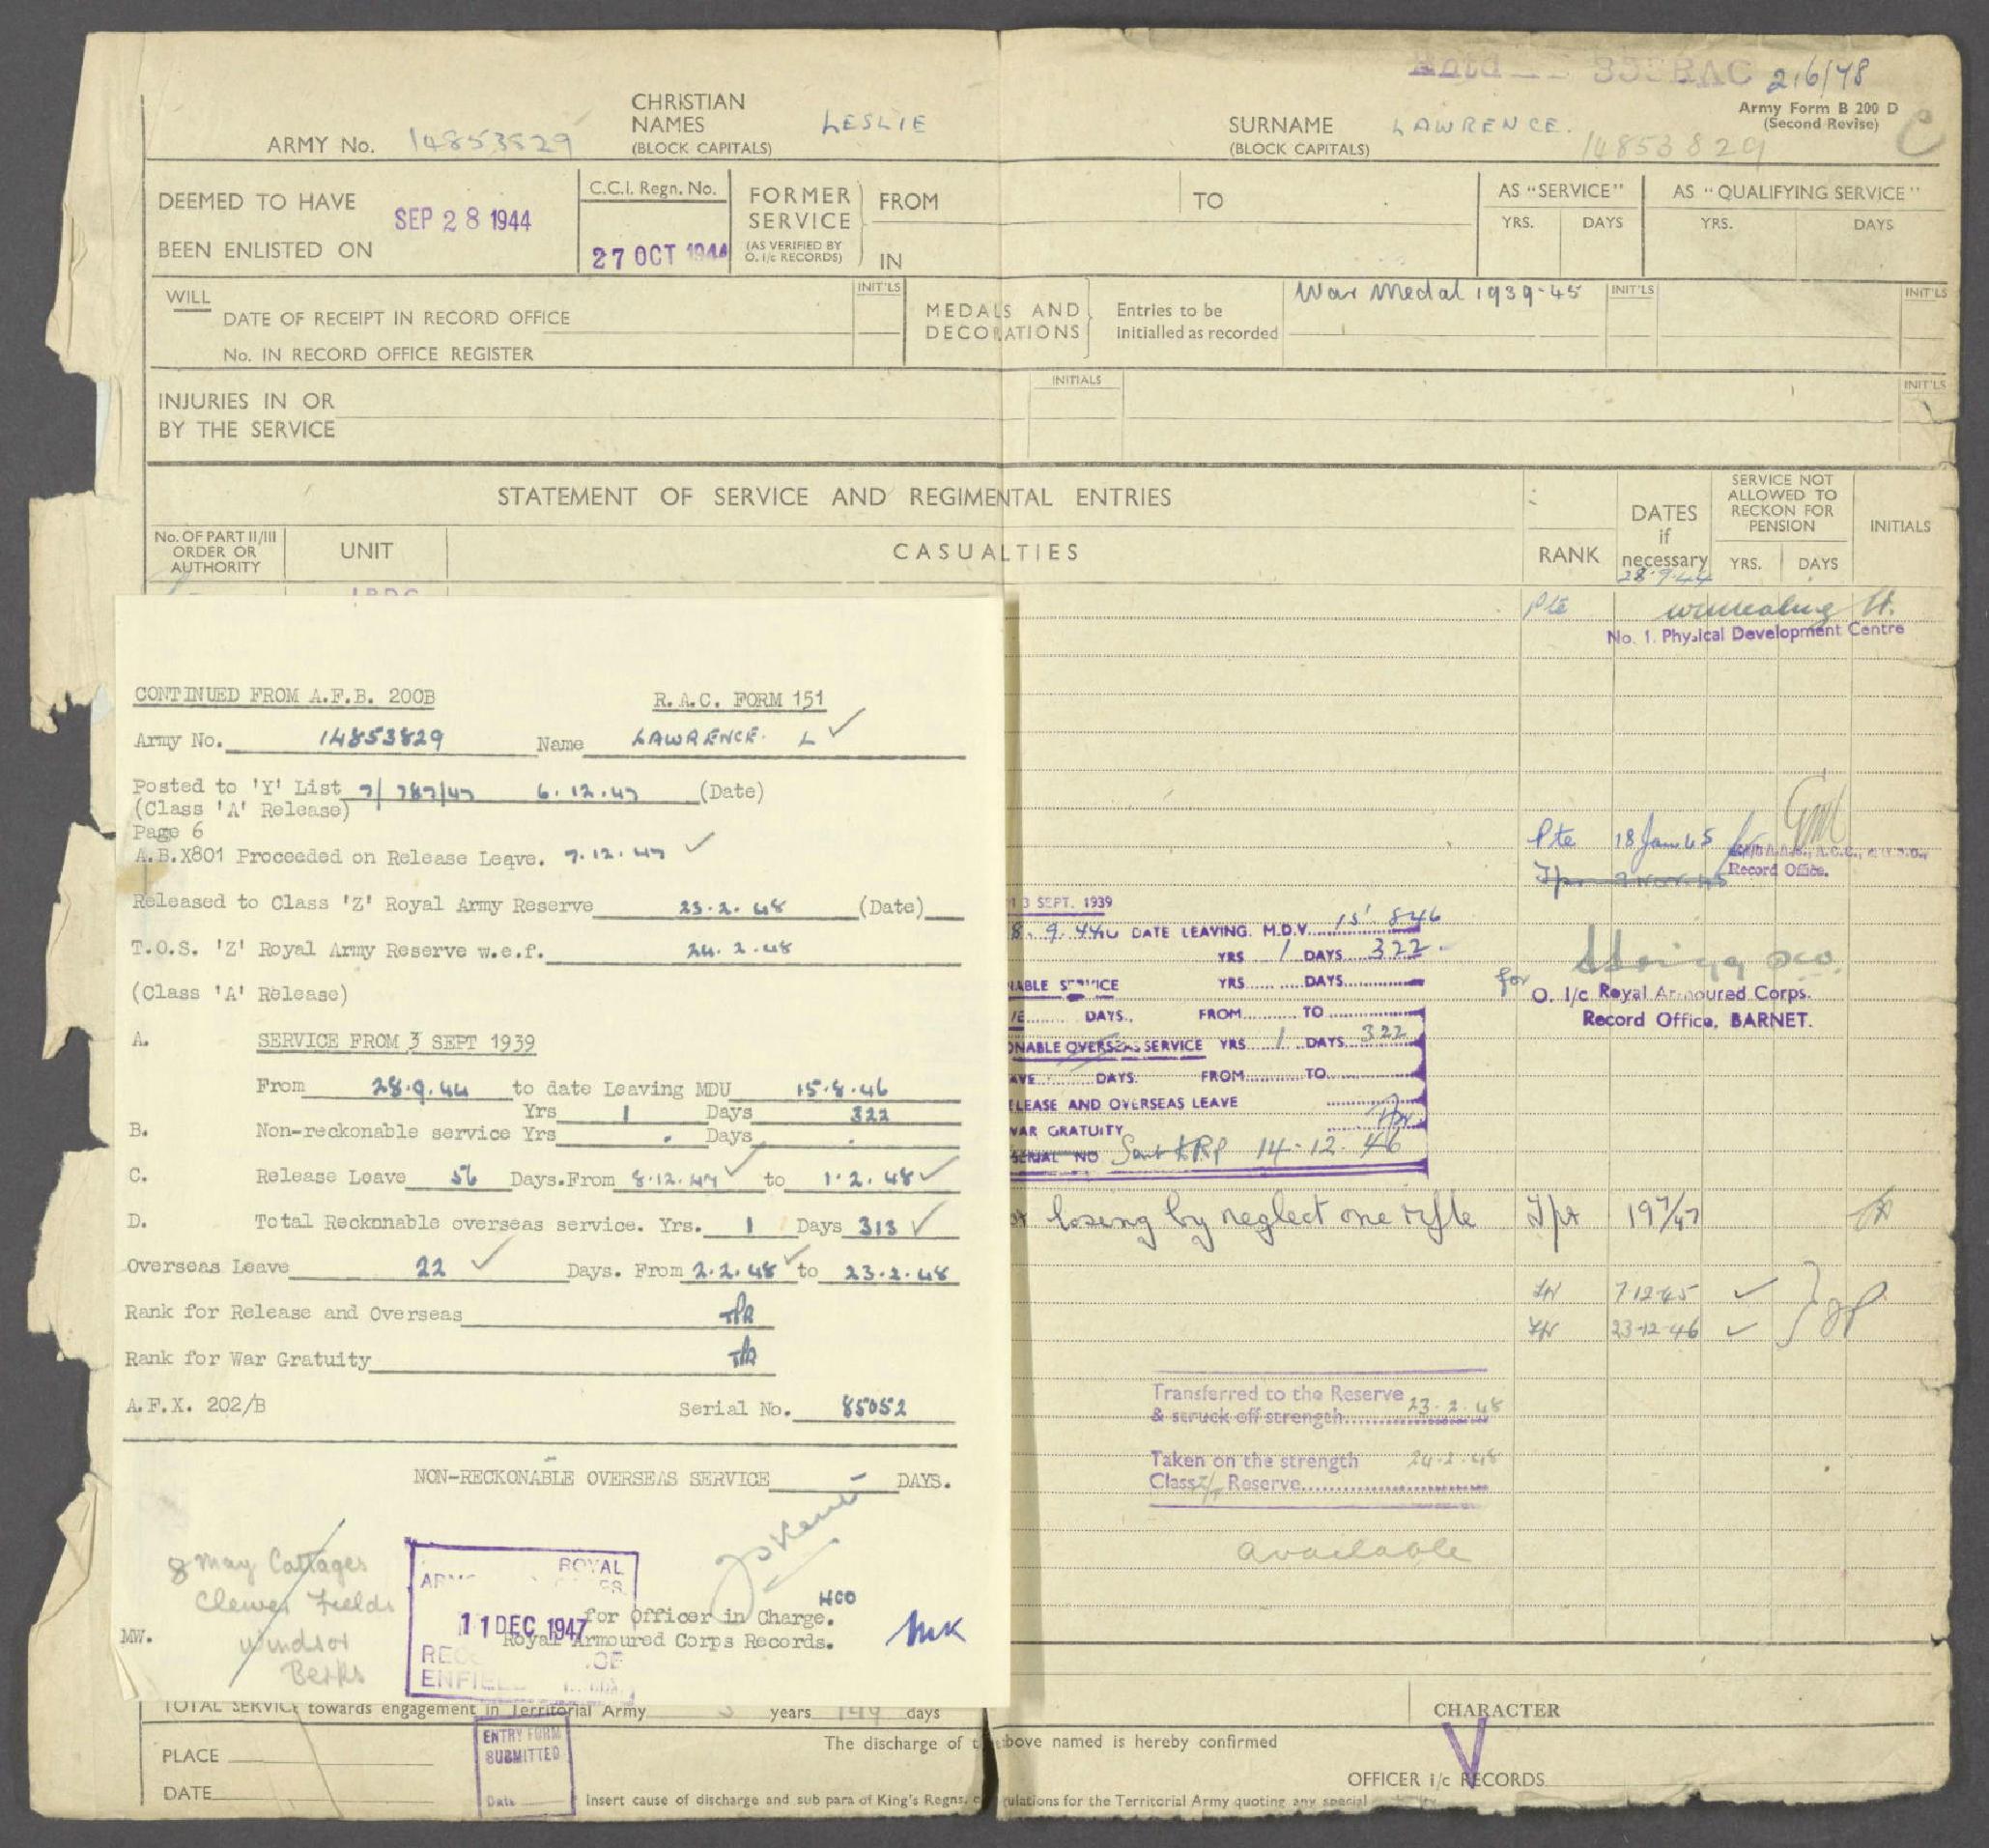 2/6/48
Army Form B 200 D
(Second Revise)
C
ARMY No. 14853829 CHRISTIAN NAMES (BLOCK CAPITALS) LESLIE SURNAME (BLOCK CAPITALS) LAWRENCE. 14853829
DEEMED TO HAVE BEEN ENLISTED ON SEP 28 1944
C.C.I. Regn. No.
27 OCT 1944
FORMER SERVICE (AS VERIFIED BY O. i/c RECORDS)
FROM TO
IN
AS "SERVICE" AS "QUALIFYING SERVICE"
YRS. DAYS YRS. DAYS
WILL
DATE OF RECEIPT IN RECORD OFFICE
No. IN RECORD OFFICE REGISTER
INIT'LS
MEDALS AND DECORATIONS
Entries to be initialled as recorded
War Medal 1939-45
INIT'LS
INIT'LS
INJURIES IN OR BY THE SERVICE
INITIALS
INIT'LS
STATEMENT OF SERVICE AND REGIMENTAL ENTRIES
No. OF PART II/III ORDER OR AUTHORITY
UNIT
CASUALTIES
RANK
DATES if necessary
SERVICE NOT ALLOWED TO RECKON FOR PENSION
YRS. DAYS
INITIALS
28.9.44
Pte
No. 1. Physical Development Centre
CONTINUED FROM A.F.B. 200B R.A.C. FORM 151
Army No. 14853829 Name LAWRENCE. L
Posted to 'Y' List 7/787/47 6.12.47 (Date)
(Class 'A' Release)
Page 6
A.B.X801 Proceeded on Release Leave. 7.12.47
Released to Class 'Z' Royal Army Reserve 23.2.48 (Date)
T.O.S. 'Z' Royal Army Reserve w.e.f. 24.2.48
(Class 'A' Release)
A. SERVICE FROM 3 SEPT 1939
From 28.9.44 to date Leaving MDU 15.8.46
Yrs 1 Days 322
B. Non-reckonable service Yrs . Days .
C. Release Leave 56 Days.From 8.12.47 to 1.2.48
D. Total Reckonable overseas service. Yrs. 1 Days 313
Overseas Leave 22 Days. From 2.2.48 to 23.2.48
Rank for Release and Overseas TPR
Rank for War Gratuity TPR
A.F.X. 202/B Serial No. 85052
NON-RECKONABLE OVERSEAS SERVICE - DAYS.
8 May Cottages
Clewer Fields
Windsor
Berks
ROYAL
11 DEC 1947
HCO
for Officer in Charge.
Royal Armoured Corps Records.
MW.
MK
Pte 18 Jan 45
Record Office.
3 SEPT. 1939
8.9.44 DATE LEAVING. M.D.V. 15.8.46
YRS 1 DAYS 322
ABLE SERVICE YRS DAYS
DAYS. FROM TO
ONABLE OVERSEAS SERVICE YRS 1 DAYS 322
AVE DAYS. FROM TO
LEASE AND OVERSEAS LEAVE
WAR GRATUITY Tpr
SERIAL NO 14-12-46
for O. I/c Royal Armoured Corps.
Record Office, BARNET.
losing by neglect one rifle Tpr 19/7/47
Tpr 7.12.45
Tpr 23.12.46
Transferred to the Reserve
& struck off strength 23.2.48
Taken on the strength 24.2.48
Class Reserve
available
TOTAL SERVICE towards engagement in Territorial Army years 149 days
PLACE
DATE
ENTRY FORM
SUBMITTED
Date
The discharge of the above named is hereby confirmed
CHARACTER
V
OFFICER i/c RECORDS
Insert cause of discharge and sub para of King's Regns. Regulations for the Territorial Army quoting any special